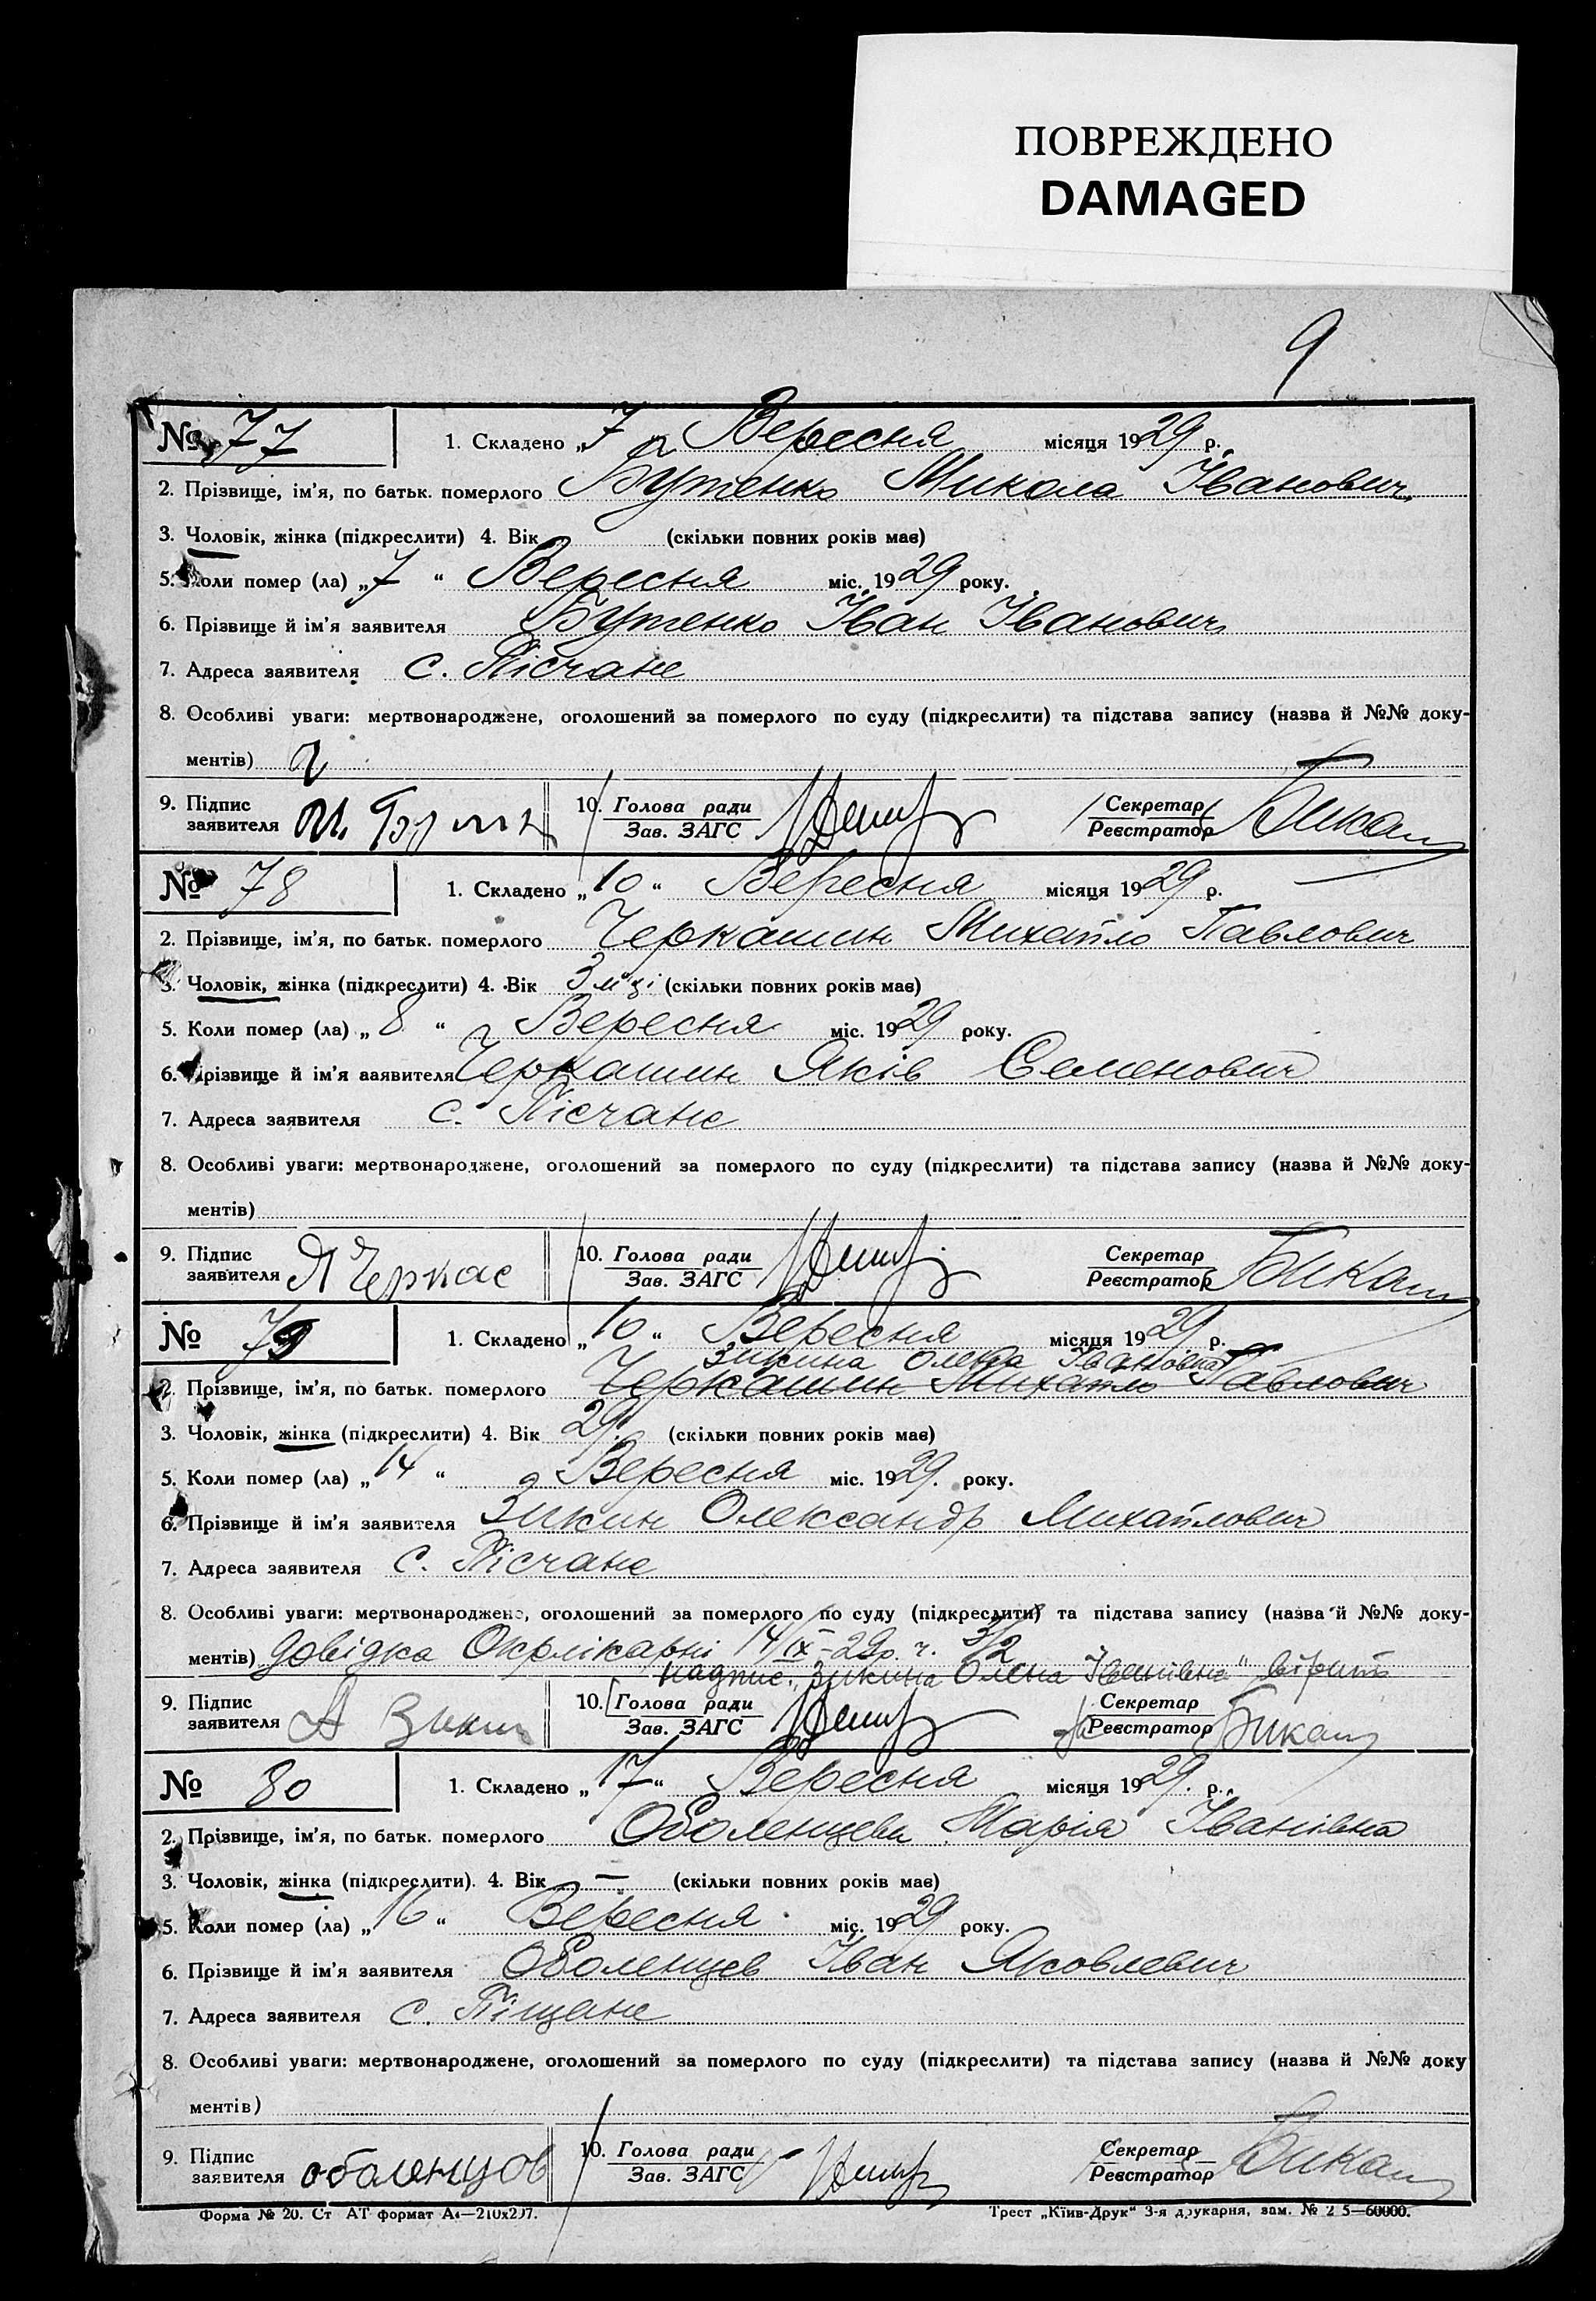 ПОВРЕЖДЕНО
DAMAGED
9
№ 77 1. Складено „7 Вересня місяця 1929 р.
2. Прізвище, ім'я, по батьк. померлого Бутенко Микола Іванович
3. Чоловік, жінка (підкреслити) 4. Вік (скільки повних років має)
5. Коли помер (ла) „7“ Вересня міс. 1929 року.
6. Прізвище й ім'я заявителя Бутенко Іван Іванович
7. Адреса заявителя с. Пісчане
8. Особливі уваги: мертвонароджене, оголошений за померлого по суду (підкреслити) та підстава запису (назва й №№ доку-
ментів)
9. Підпис заявителя 10. Голова ради Зав. ЗАГС Секретар Реєстратор Бикаш
№ 78 1. Складено „10“ Вересня місяця 1929 р.
2. Прізвище, ім'я, по батьк. померлого Черкашин Михайло Павлович
3. Чоловік, жінка (підкреслити) 4. Вік 3 м-ці (скільки повних років має)
5. Коли помер (ла) „8“ Вересня міс. 1929 року.
6. Прізвище й ім'я заявителя Черкашин Яків Семенович
7. Адреса заявителя с. Пісчане
8. Особливі уваги: мертвонароджене, оголошений за померлого по суду (підкреслити) та підстава запису (назва й №№ доку-
ментів)
9. Підпис заявителя Я Черкас 10. Голова ради Зав. ЗАГС Секретар Реєстратор Бикаш
№ 79 1. Складено „10“ Вересня місяця 1929 р.
Зикина Олена Івановна
2. Прізвище, ім'я, по батьк. померлого Черкашин Михайло Павлович
3. Чоловік, жінка (підкреслити) 4. Вік 29. (скільки повних років має)
5. Коли помер (ла) „14“ Вересня міс. 1929. року.
6. Прізвище й ім'я заявителя Зикин Олександр Михайлович
7. Адреса заявителя с. Пісчане
8. Особливі уваги: мертвонароджене, оголошений за померлого по суду (підкреслити) та підстава запису (назва й №№ доку-
ментів) Довідка Окрлікарні 14/IX-29р. ч. 3/2
надпис. „Зикина Олена Іванівна“ вірить
9. Підпис заявителя А Зикин 10. Голова ради Зав. ЗАГС Секретар Реєстратор Бикаш
№ 80 1. Складено „17“ Вересня місяця 1929. р.
2. Прізвище, ім'я, по батьк. померлого Оболенцева Марія Іванівна
3. Чоловік, жінка (підкреслити). 4. Вік — (скільки повних років має)
5. Коли помер (ла) „16“ Вересня міс. 1929 року.
6. Прізвище й ім'я заявителя Оболенцев Іван Яковлевич
7. Адреса заявителя с. Піщане
8. Особливі уваги: мертвонароджене, оголошений за померлого по суду (підкреслити) та підстава запису (назва й №№ доку
ментів)
9. Підпис заявителя оболенцов 10. Голова ради Зав. ЗАГС Секретар Реєстратор Бикаш
Форма № 20. Ст АТ формат А4—210х297. Трест „Київ-Друк“ 3-я друкарня, зам. № 2 5—60000.